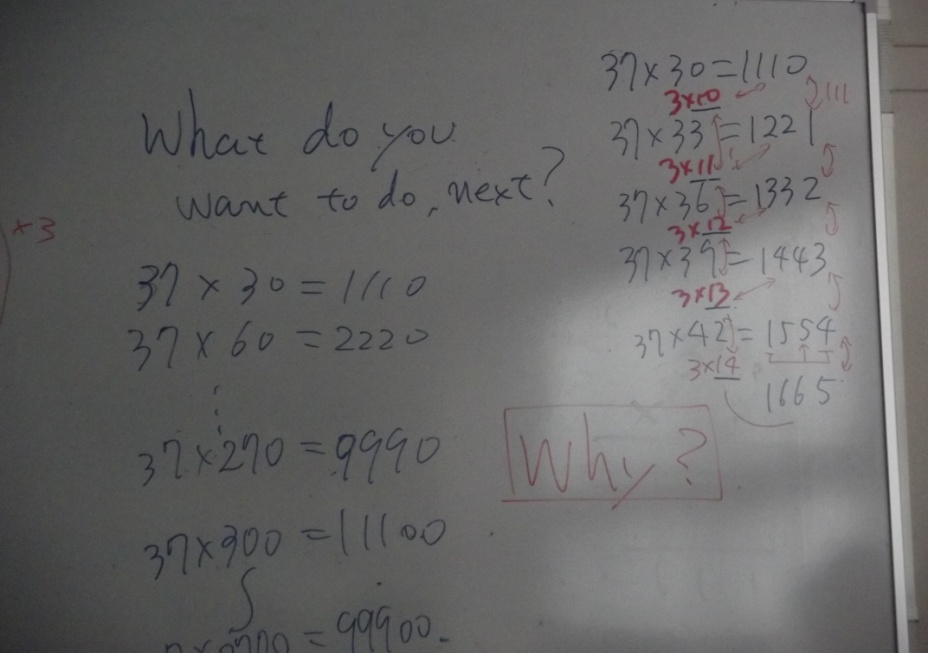 What do you
want to do, next?
×3
37×30=1110
37×60=2220
37×270=9990
37×300=11100
=99900.
37×30=1110
3×10
111
37×33=1221
3×11
37×36=1332
3×12
37×39=1443
3×13
37×42=1554
3×14
1665
Why?